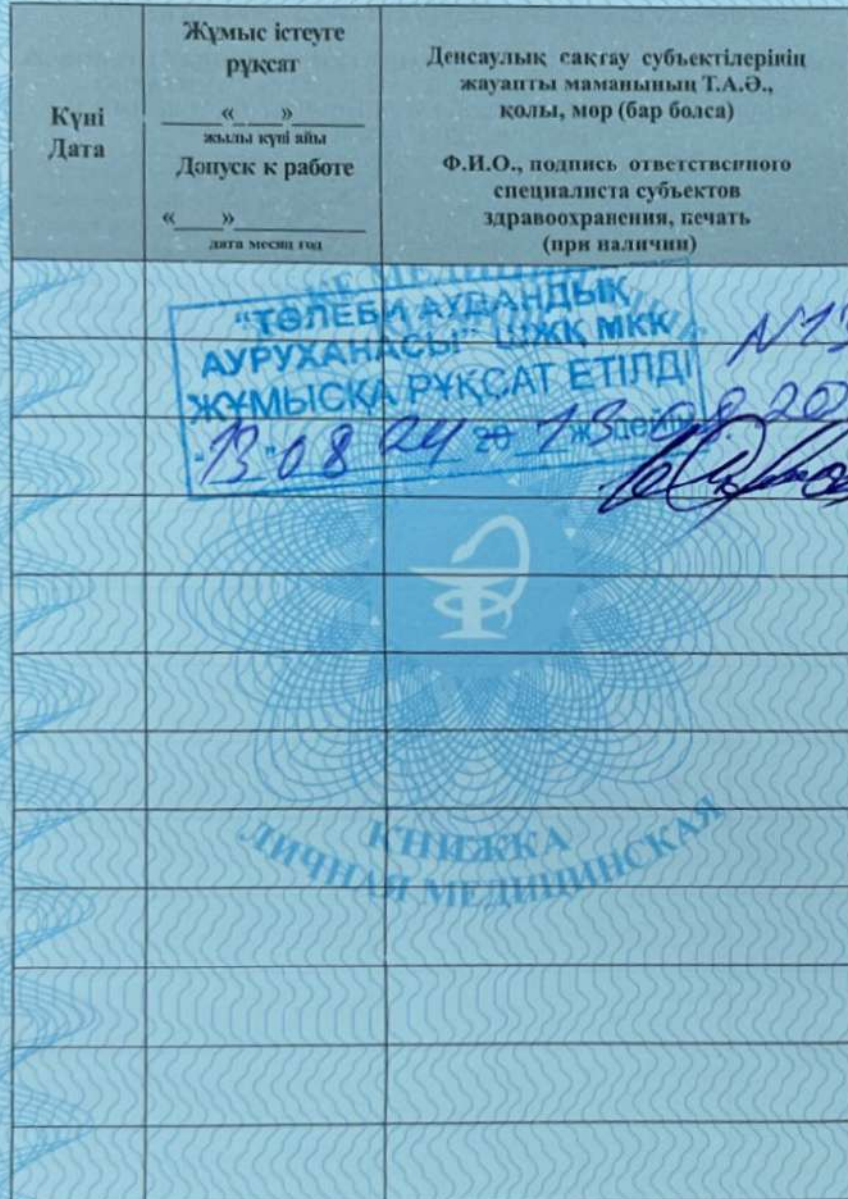 Күні
Дата
Жұмыс істеуге
рұқсат
«___»
жылы күні айы
Допуск к работе
«___»
дата месяц год
Денсаулық сақтау субъектілерінің
жауапты маманының Т.А.Ә.,
қолы, мөр (бар болса)
Ф.И.О., подпись ответственного
специалиста субъектов
здравоохранения, печать
(при наличии)
"ТӨЛЕБИ АУДАНДЫҚ
АУРУХАНАСЫ" ШЖҚ МКК
ЖҰМЫСҚА РҰҚСАТ ЕТІЛДІ
"13" 08 24 20 ж дейін
N13
13 08 20
КНИЖКА
ЛИЧНАЯ МЕДИЦИНСКАЯ